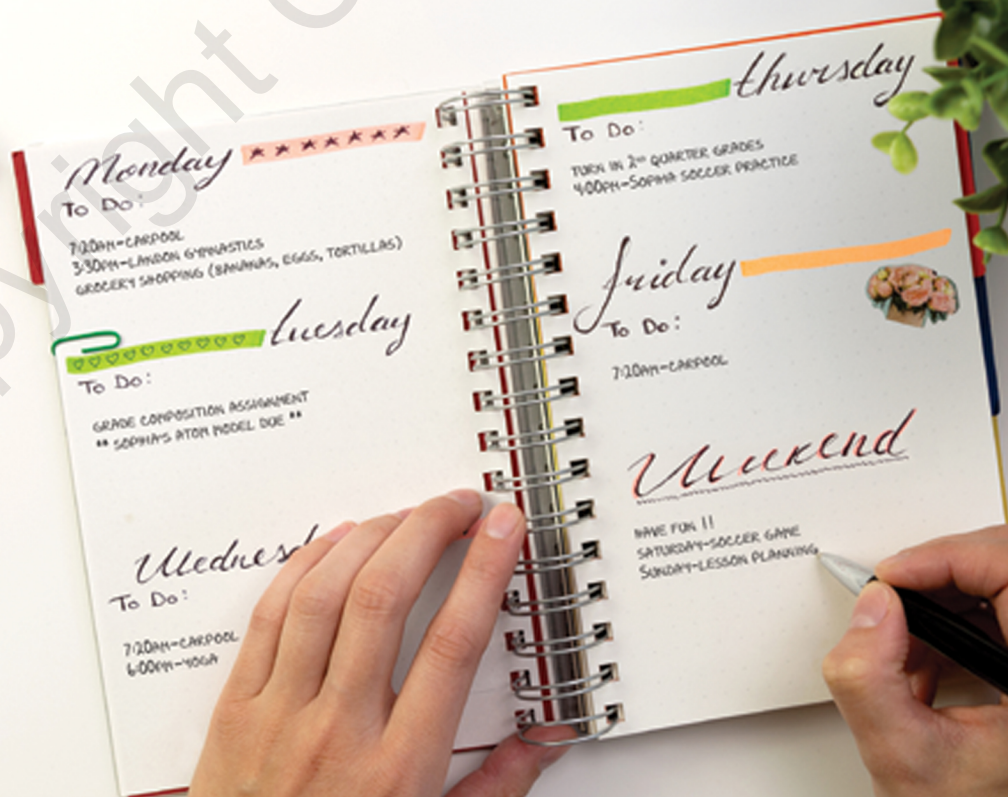 Copyright C
Monday
To Do:
7:20AM-CARPOOL
3:30PM-LANDON GYMNASTICS
GROCERY SHOPPING (BANANAS, EGGS, TORTILLAS)
tuesday
To Do:
GRADE COMPOSITION ASSIGNMENT
** SOPHIA'S ATOM MODEL DUE **
Wednesd
To Do:
7:20AM-CARPOOL
6:00PM-YOGA
thursday
To Do:
TURN IN 2ND QUARTER GRADES
4:00PM-SOPHIA SOCCER PRACTICE
friday
To Do:
7:20AM-CARPOOL
Weekend
HAVE FUN !!
SATURDAY-SOCCER GAME
SUNDAY-LESSON PLANNING